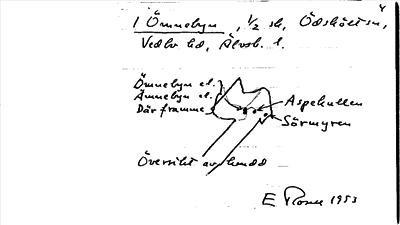 1 Ömnebyn, 1/2 sk, Ödskölts sn,
Vedbo hd, Älvsb. l.
Ömnebyn el.
Ämnebyn el.
Där framme
Aspekullen
Sörmyren
Översikt av
E 1953